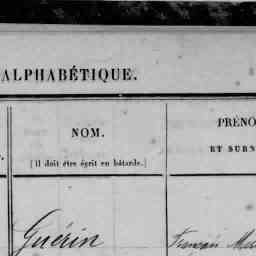 ALPHABÉTIQUE.
NOM.
[il doit être écrit en bâtarde.]
PRÉNO
ET SURN
Guérin